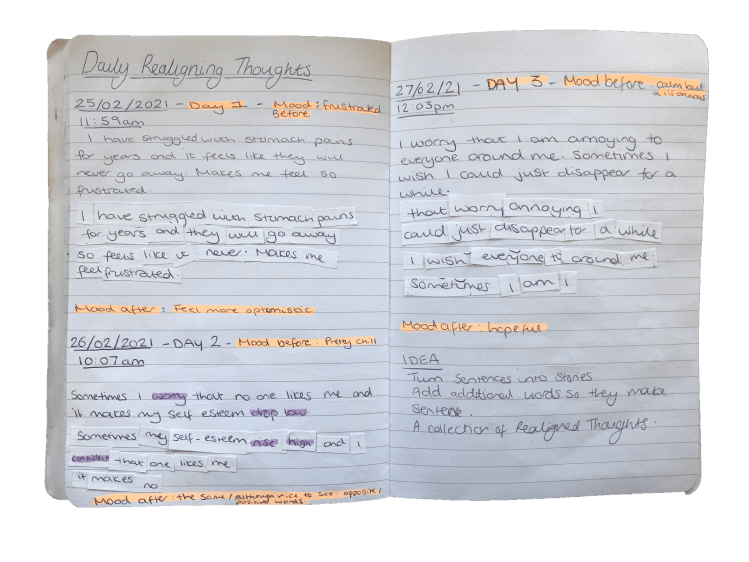 Daily Realigning Thoughts
25/02/2021 - Day 1 - Mood : frustrated
Before
11:59am
I have struggled with stomach pains
for years and it feels like they will
never go away. Makes me feel so
frustrated.
I have strugged with stomach pains
for years and they will go away
so feels like it never. Makes me
feel frustrated.
Mood after : Feel more optimistic
26/02/2021 - DAY 2 - Mood before : Pretty chill
10:07am
Sometimes I worry that no one likes me and
it makes my self esteem drop low.
Sometimes my self-esteem rise high and I
confident that one likes me
it makes no
Mood after : the same / although nice to see opposite/
positive words.
27/02/21 - DAY 3 - Mood before : calm but
a bit anxious
12:03pm
I worry that I am annoying to
everyone around me. Sometimes I
wish I could just disappear for a
while.
that worry annoying I
could just disappear for a while
I wish everyone to around me.
Sometimes I am I
Mood after : hopeful
IDEA
Turn sentences into stories
Add additional words so they make
sentence.
A collection of Realigned Thoughts.